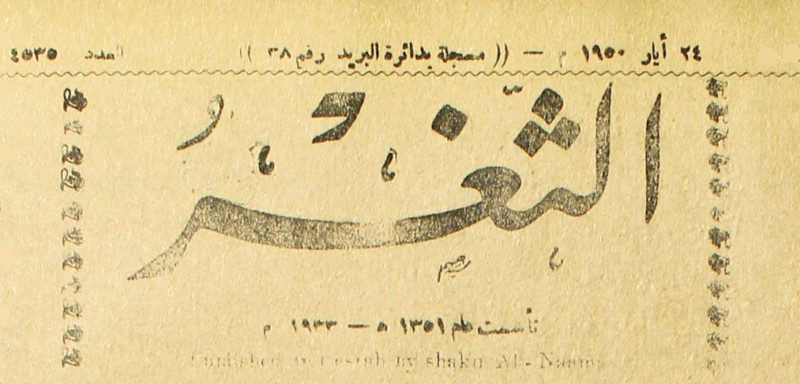 ٢٤ أيار ١٩٥٠ م — (( مسجلة بدائرة البريد رقم ٣٨ )) العدد ٤٥٣٥
الثغر
تأسست عام ١٣٥١ ه — ١٩٣٣ م
by shakir Al-Naama